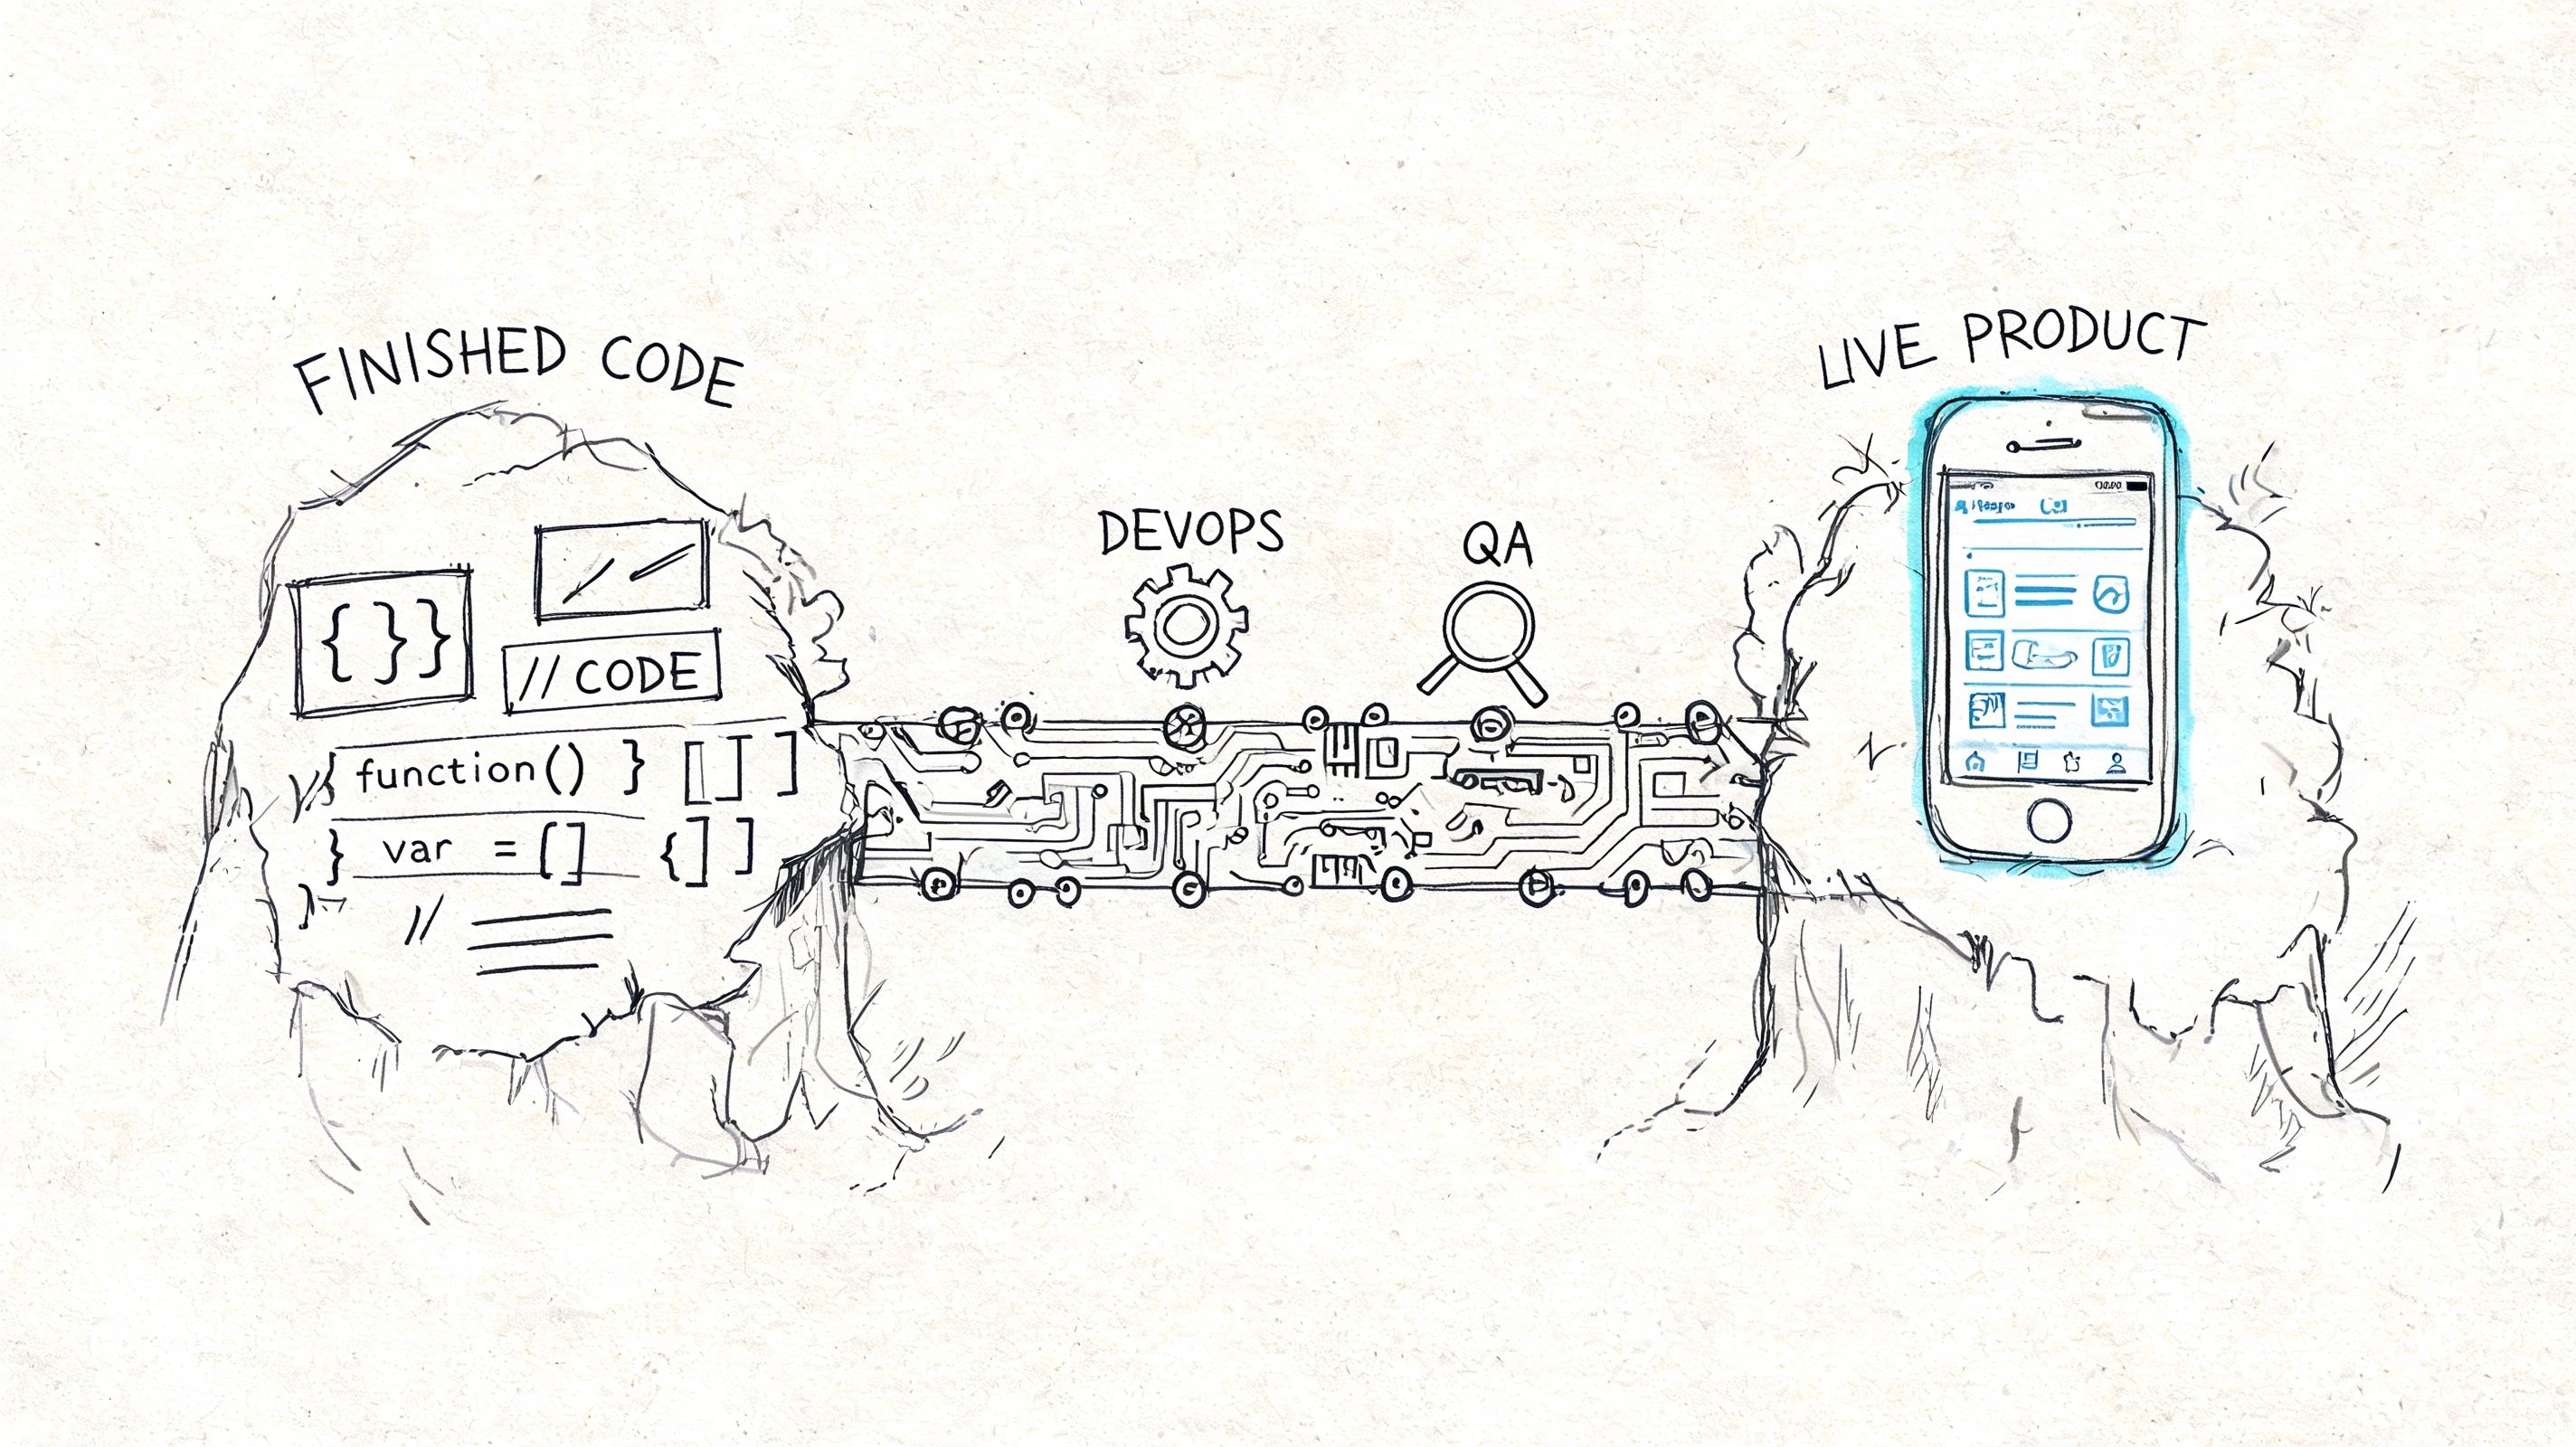 FINISHED CODE
LIVE PRODUCT
DEVOPS
QA
{ } }
// CODE
function() } [ ] ]
} var = [] { ] ]
//